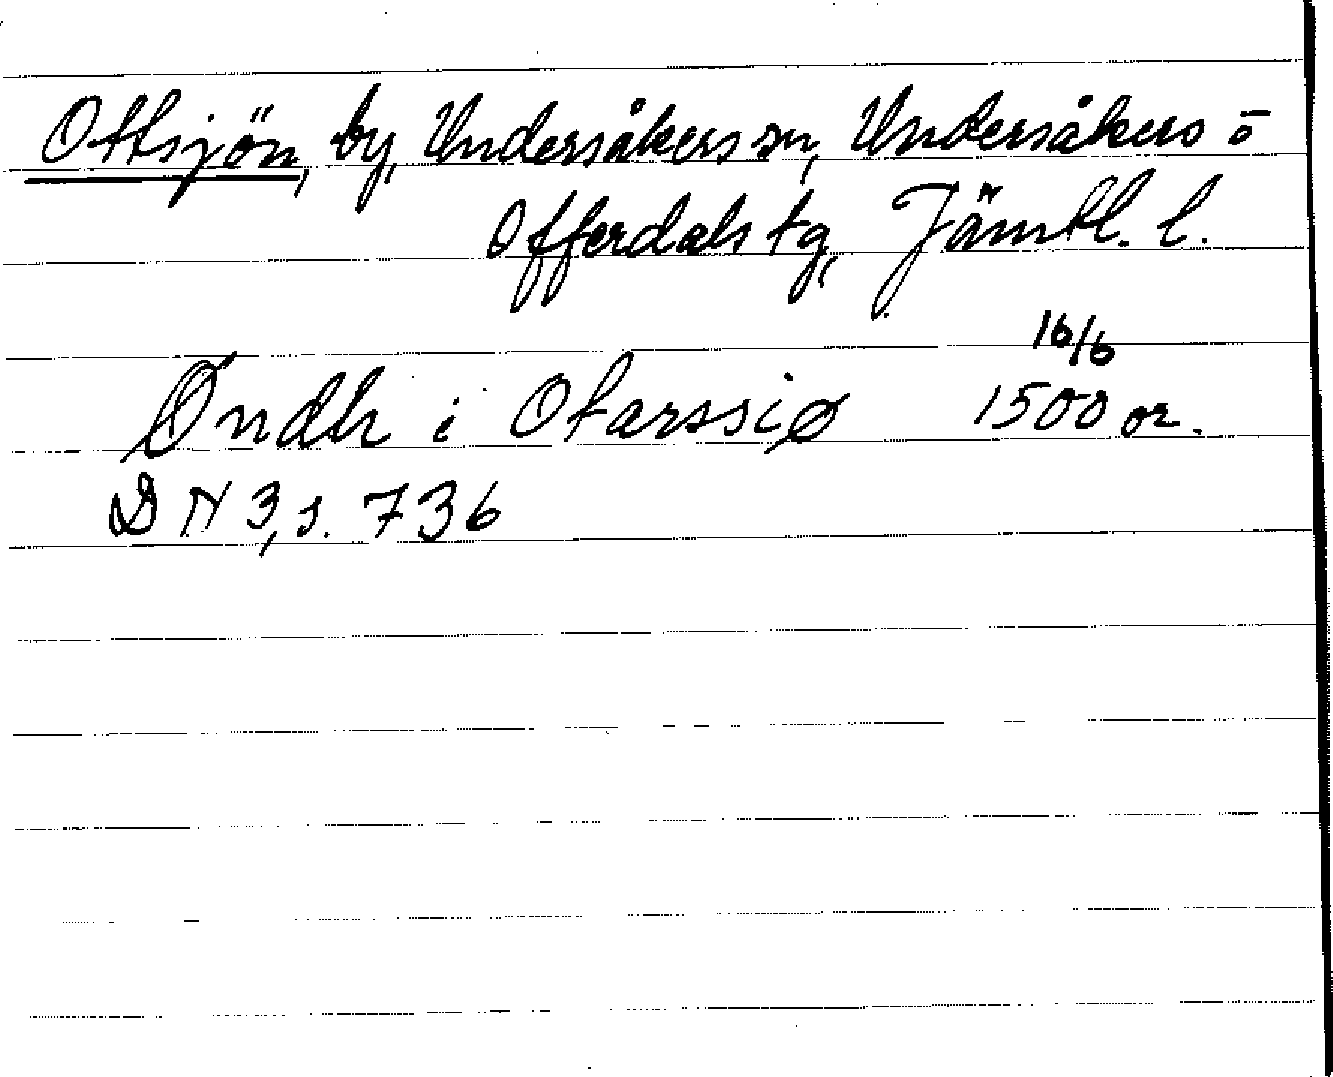 Ottsjön, by, Undersåkers sn, Undersåkers o
Offerdals tg, Jämtl. l.
16/6
Øndh i Otarssiø 1500 or.
DN 3, s. 736